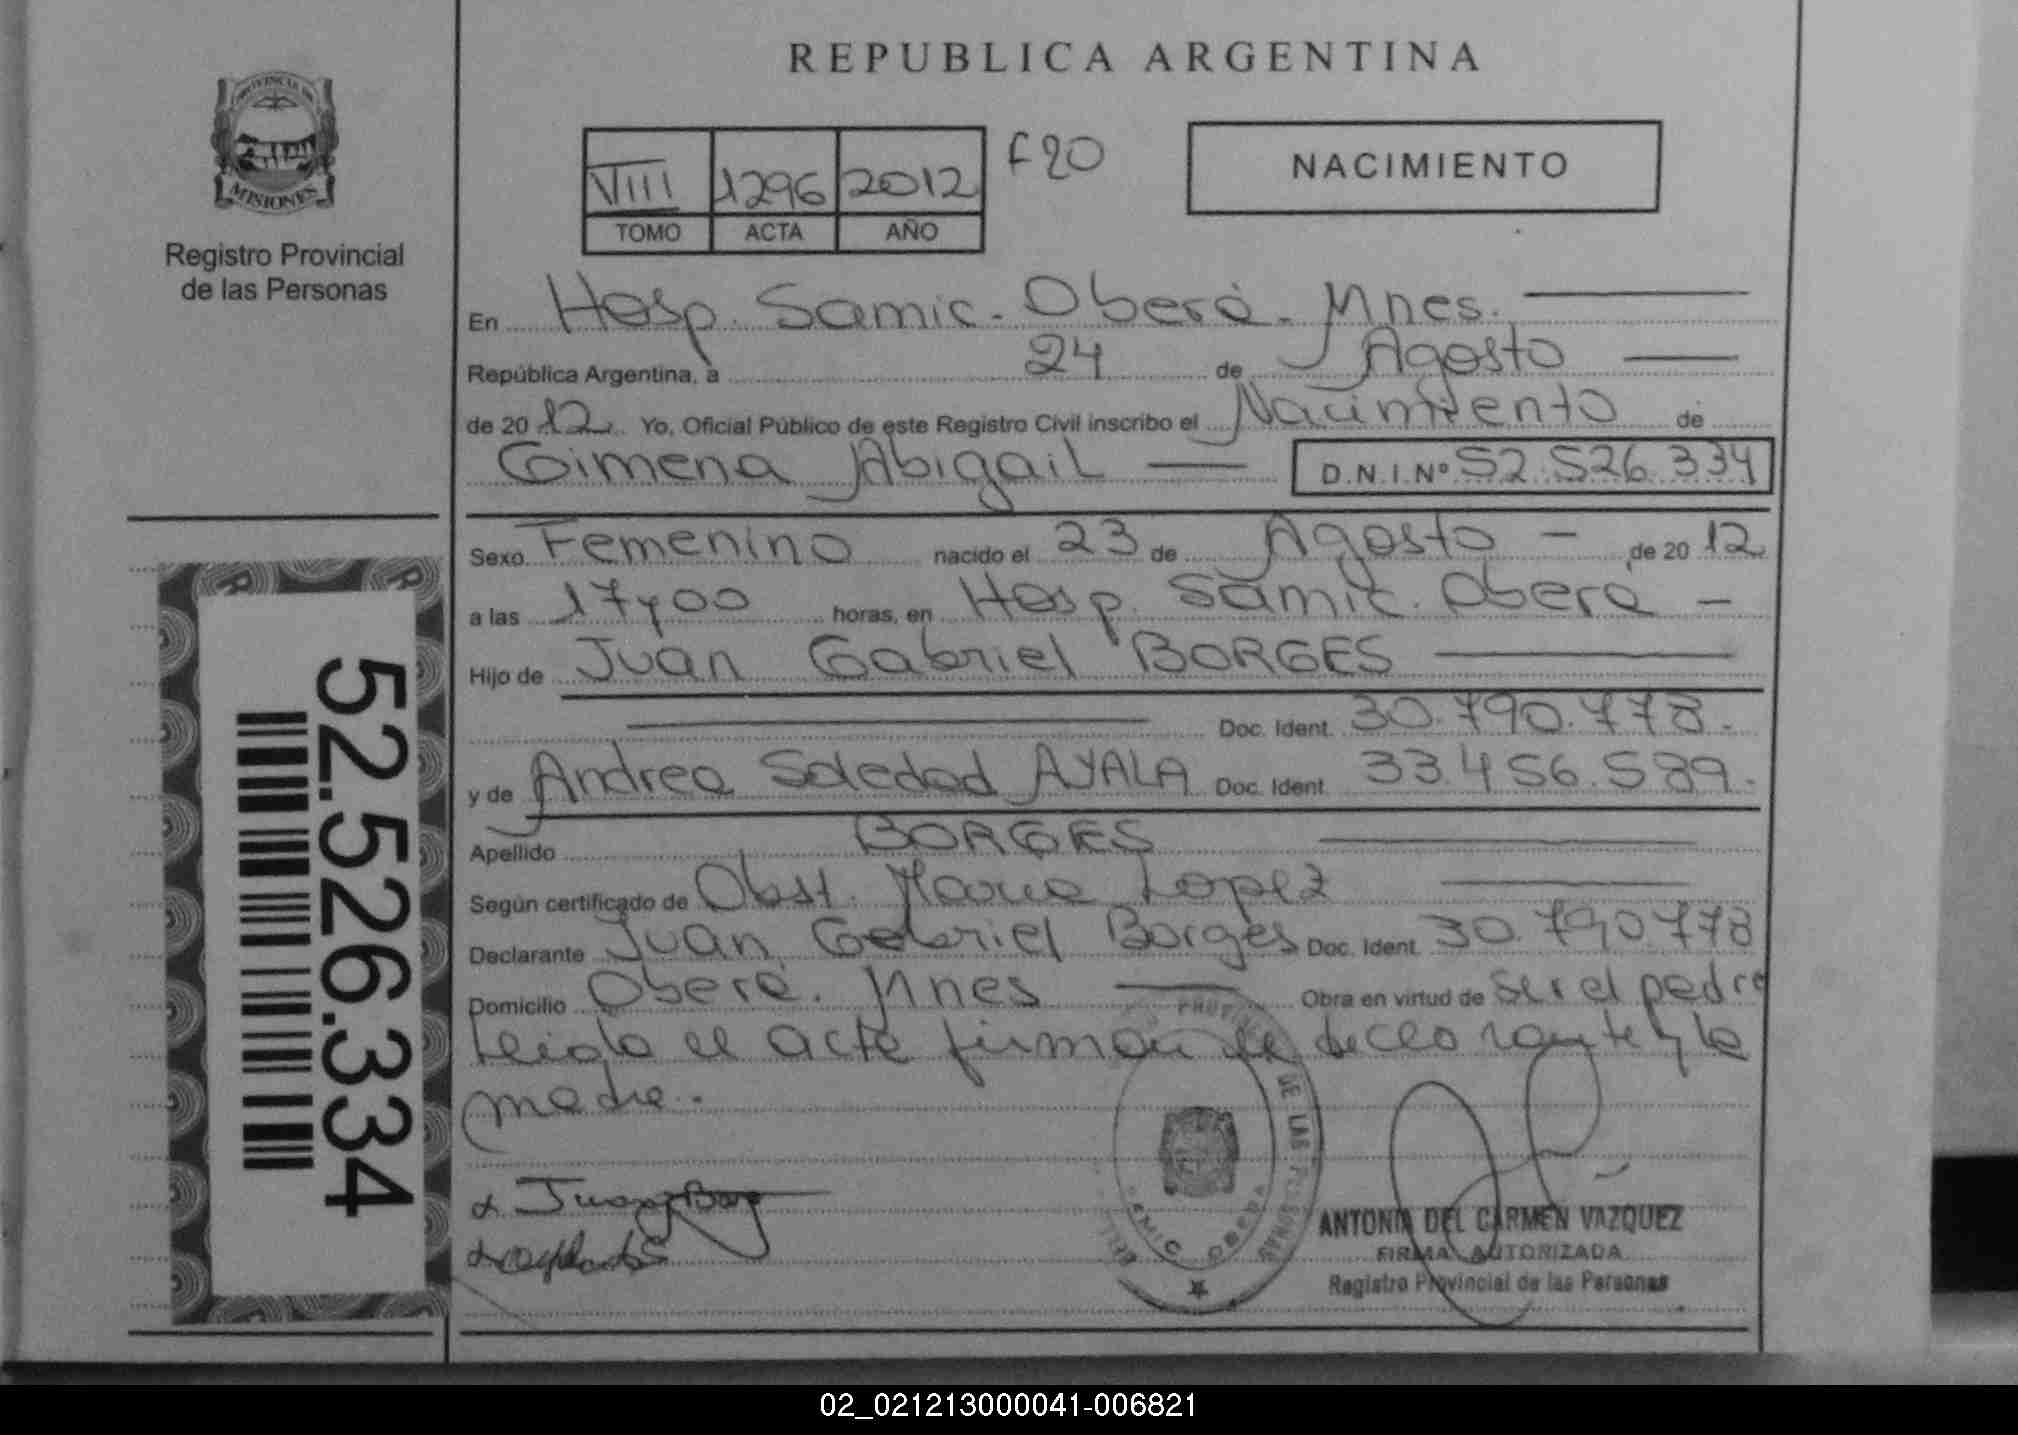 REPUBLICA ARGENTINA
PROVINCIA DE
MISIONES
Registro Provincial
de las Personas
VIII 1296 2012 F20
TOMO ACTA AÑO
NACIMIENTO
En Hosp. Samic. Oberá. Mnes.
República Argentina, a 24 de Agosto
de 2012 Yo, Oficial Público de este Registro Civil inscribo el Nacimiento de
Gimena Abigail D.N.I.Nº 52.526.334
Sexo Femenino nacido el 23 de Agosto de 2012
a las 17 y 00 horas, en Hosp. Samic. Oberá
Hijo de Juan Gabriel BORGES
Doc. Ident. 30.790.778.
y de Andrea Soledad AYALA Doc. Ident. 33.456.589.
Apellido BORGES
Según certificado de Obst. Maria Lopez
Declarante Juan Gabriel Borges Doc. Ident. 30.790.778
Domicilio Oberá. Mnes Obra en virtud de ser el padre
Leida el acta firman el declarante y la
madre.
52.526.334
Juan Borg
DE LAS PERSONAS
SAMIC OBERA
ANTONIA DEL CARMEN VAZQUEZ
FIRMA AUTORIZADA
Registro Provincial de las Personas
02_021213000041-006821